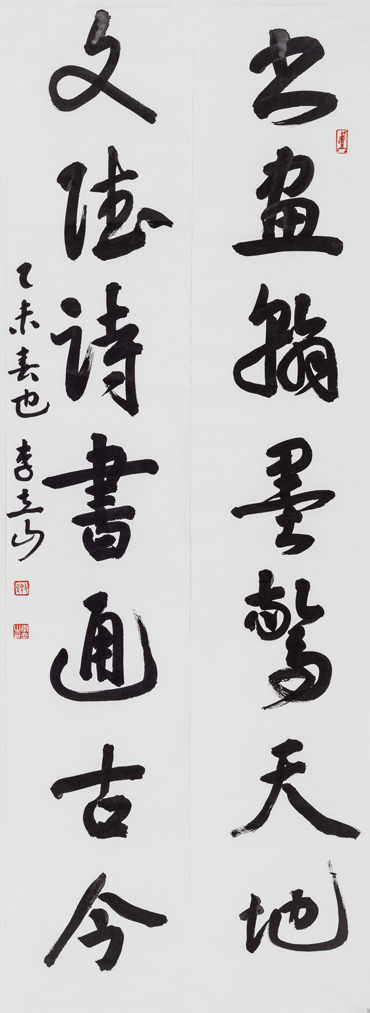 书画翰墨驚天地
文德詩書通古今
乙未春也 李立山